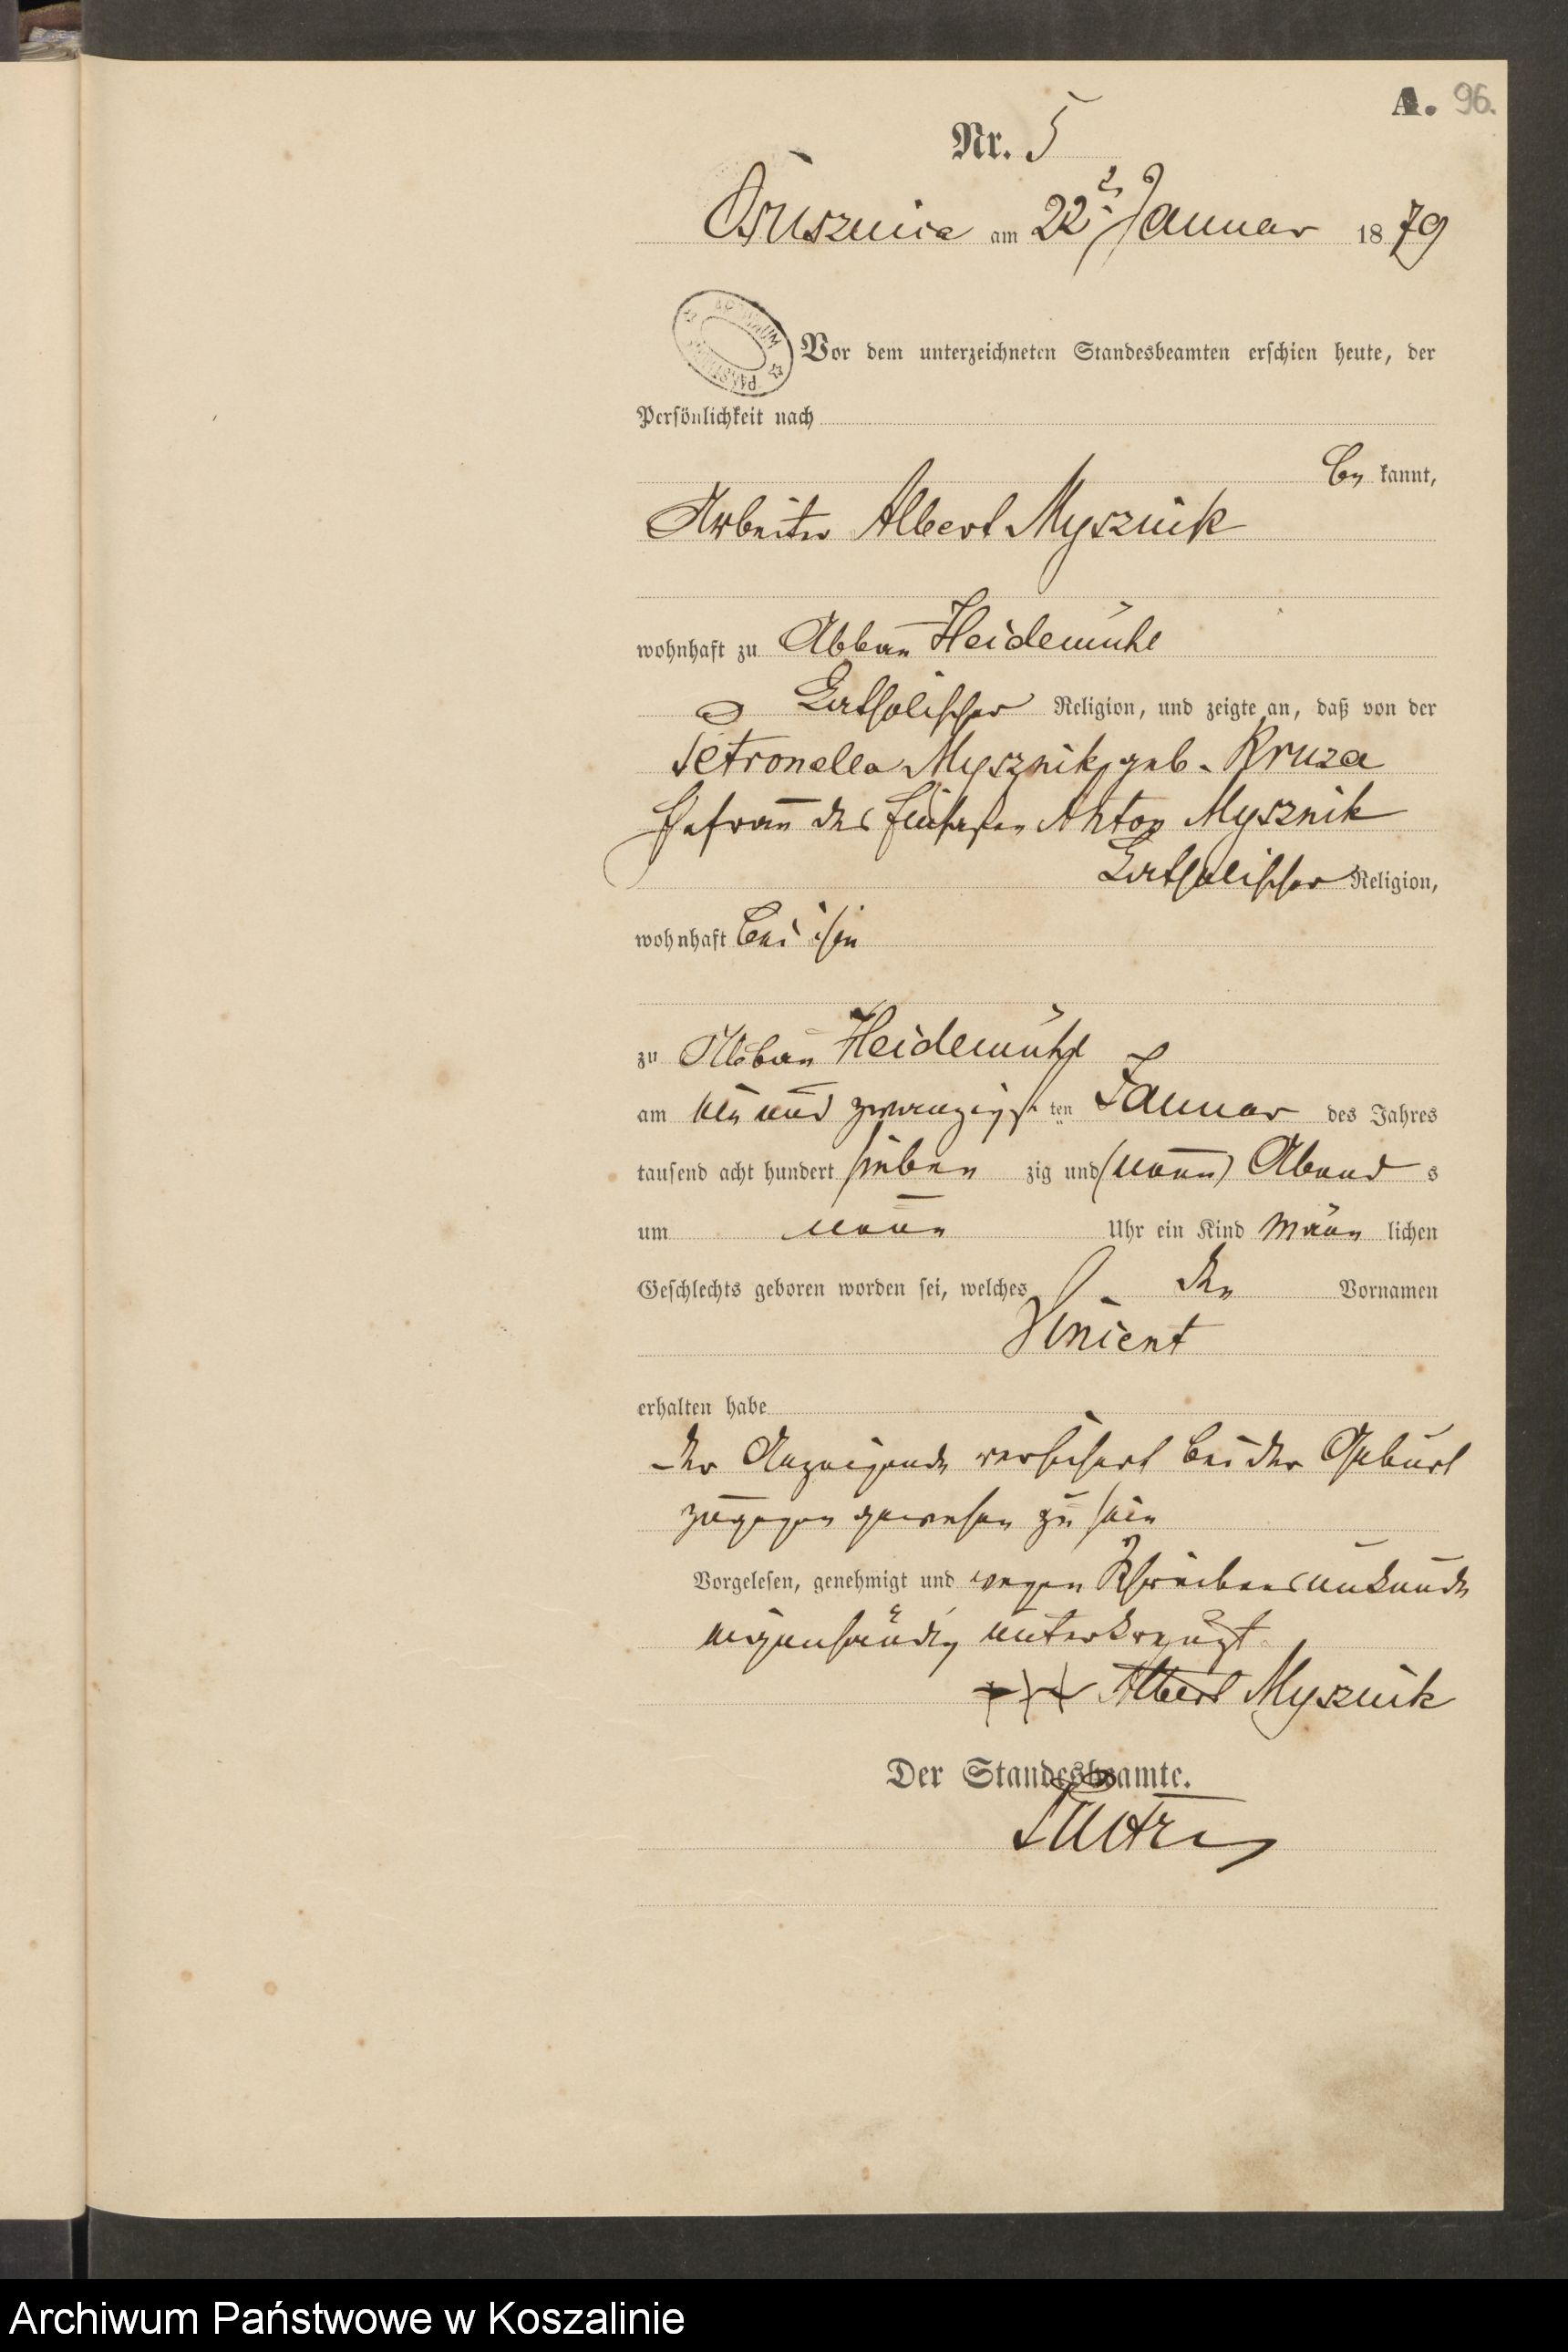 A. 96.
Nr. 5
Osusznica am 22ten Januar 1879
Vor dem unterzeichneten Standesbeamten erschien heute, der
Persönlichkeit nach
be kannt,
Arbeiter Albert Mysznik
wohnhaft zu Abbau Heidemühl
katholischer Religion, und zeigte an, daß von der
Petronella Mysznik geb. Kruza
Ehefrau des Anton Mysznik
katholischer Religion,
wohnhaft bei ihm
zu Abbau Heidemühl
am ein und zwanzigsten Januar des Jahres
tausend acht hundert sieben zig und (neun) Abend s
um neun Uhr ein Kind männ lichen
Geschlechts geboren worden sei, welches den Vornamen
Vincent
erhalten habe
der Anzeigende versichert bei der Geburt
zugegen gewesen zu sein
Vorgelesen, genehmigt und wegen Schreibensunkunde
eigenhändig unterkreuzt
+++ Albert Mysznik
Der Standesbeamte.
ARCHIWUM PAŃSTWOWE
Archiwum Państwowe w Koszalinie